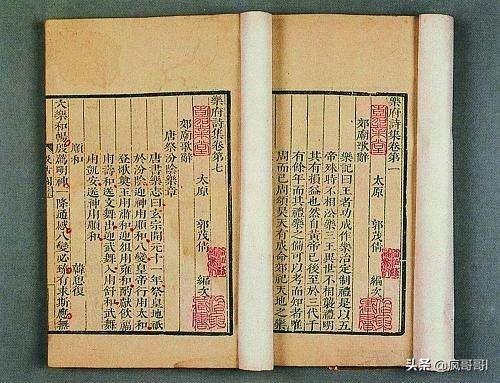 樂府詩集卷第一
太原 郭茂倩 編次
郊廟歌辭
樂記曰王者功成作樂治定制禮是以五
帝殊時不相沿樂三王異世不相襲禮明
其有損益也然自黃帝已後至於三代千
有餘年而其禮樂之備可以考而知者唯
周而已周頌昊天有成命郊祀天地之樂
樂府詩集卷第七
太原 郭茂倩 編次
郊廟歌辭
唐祭汾陰樂章
唐書樂志曰玄宗開元十一年祭皇地祇
於汾陰迎神用順和八變皇帝行用太和
登歌奠玉用肅和迎俎用雍和酌獻飲福
用壽和送文舞出迎武舞入用舒和武舞
用凱安送神用順和
順和 韓思復
大樂和暢殷薦明神一降通感八變必臻有求斯應無
头条 @疯哥哥!